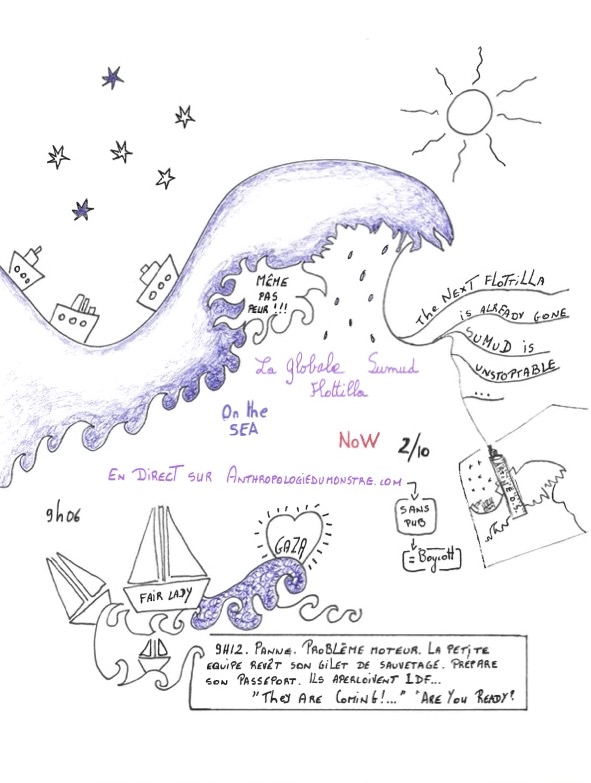 MÊME
PAS
PEUR !!!
The NEXT FLOTTILLA
is ALREADY GONE
SUMUD is
UNSTOPTABLE
...
La globale Sumud
Flottilla
On the
SEA
NOW 2/10
EN DIRECT SUR ANTHROPOLOGIEDUMONSTRE.COM
SANS
PUB
= Boycott
9h06
GAZA
FAIR LADY
9H12. PANNE. PROBLÈME MOTEUR. LA PETITE
EQUIPE REVÊT SON GILET DE SAUVETAGE. PRÉPARE
SON PASSEPORT. ILS APERÇOIVENT IDF...
"They ARE COMING!..." "ARE YOU READY?